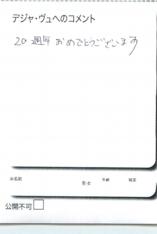 デジャ・ヴュへのコメント
20周年 おめでとうございます
お名前
男・女 年齢 職業
公開不可